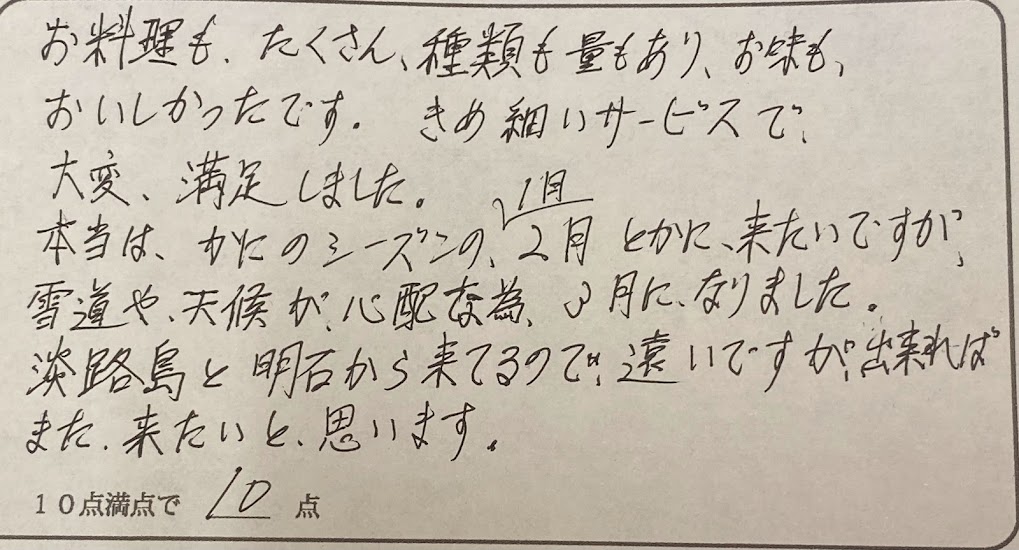 お料理も、たくさん、種類も量もあり、お味も、
おいしかったです。 きめ細いサービスで、
大変、満足しました。
1月
本当は、かにのシーズンの、2月とかに、来たいですが、
雪道や、天候が、心配な為、3月に、なりました。
淡路島と明石から来てるので、遠いですが、出来れば
また、来たいと、思います。
10点満点で 10 点